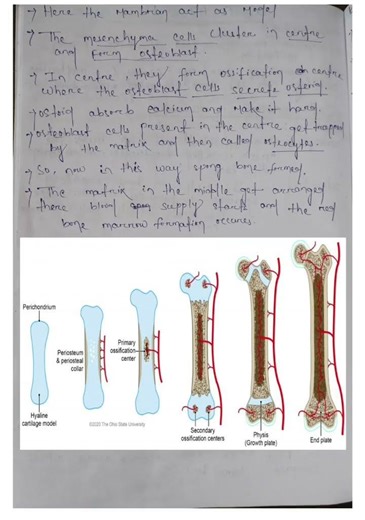 → Here the Mambrian act as Model
→ The mesenchyma cells cluster in centre
and form osteoblast.
→ In centre, they form ossification centre
where the osteoblast cells secrete osteoid.
→ ostoid absorb calcium and make it hard.
→ osteoblast cells present in the centre get trapped
by the matrix and then called osteocytes.
→ So, now in this way spong bone formed.
→ The matrix in the middle get arranged
there blood supply starts and the red
bone marrow formation occures.
Perichondrium
Hyaline
cartilage model
Periosteum
& periosteal
collar
Primary
ossification
center
©2020 The Ohio State University
Secondary
ossification centers
Physis
(Growth plate)
End plate